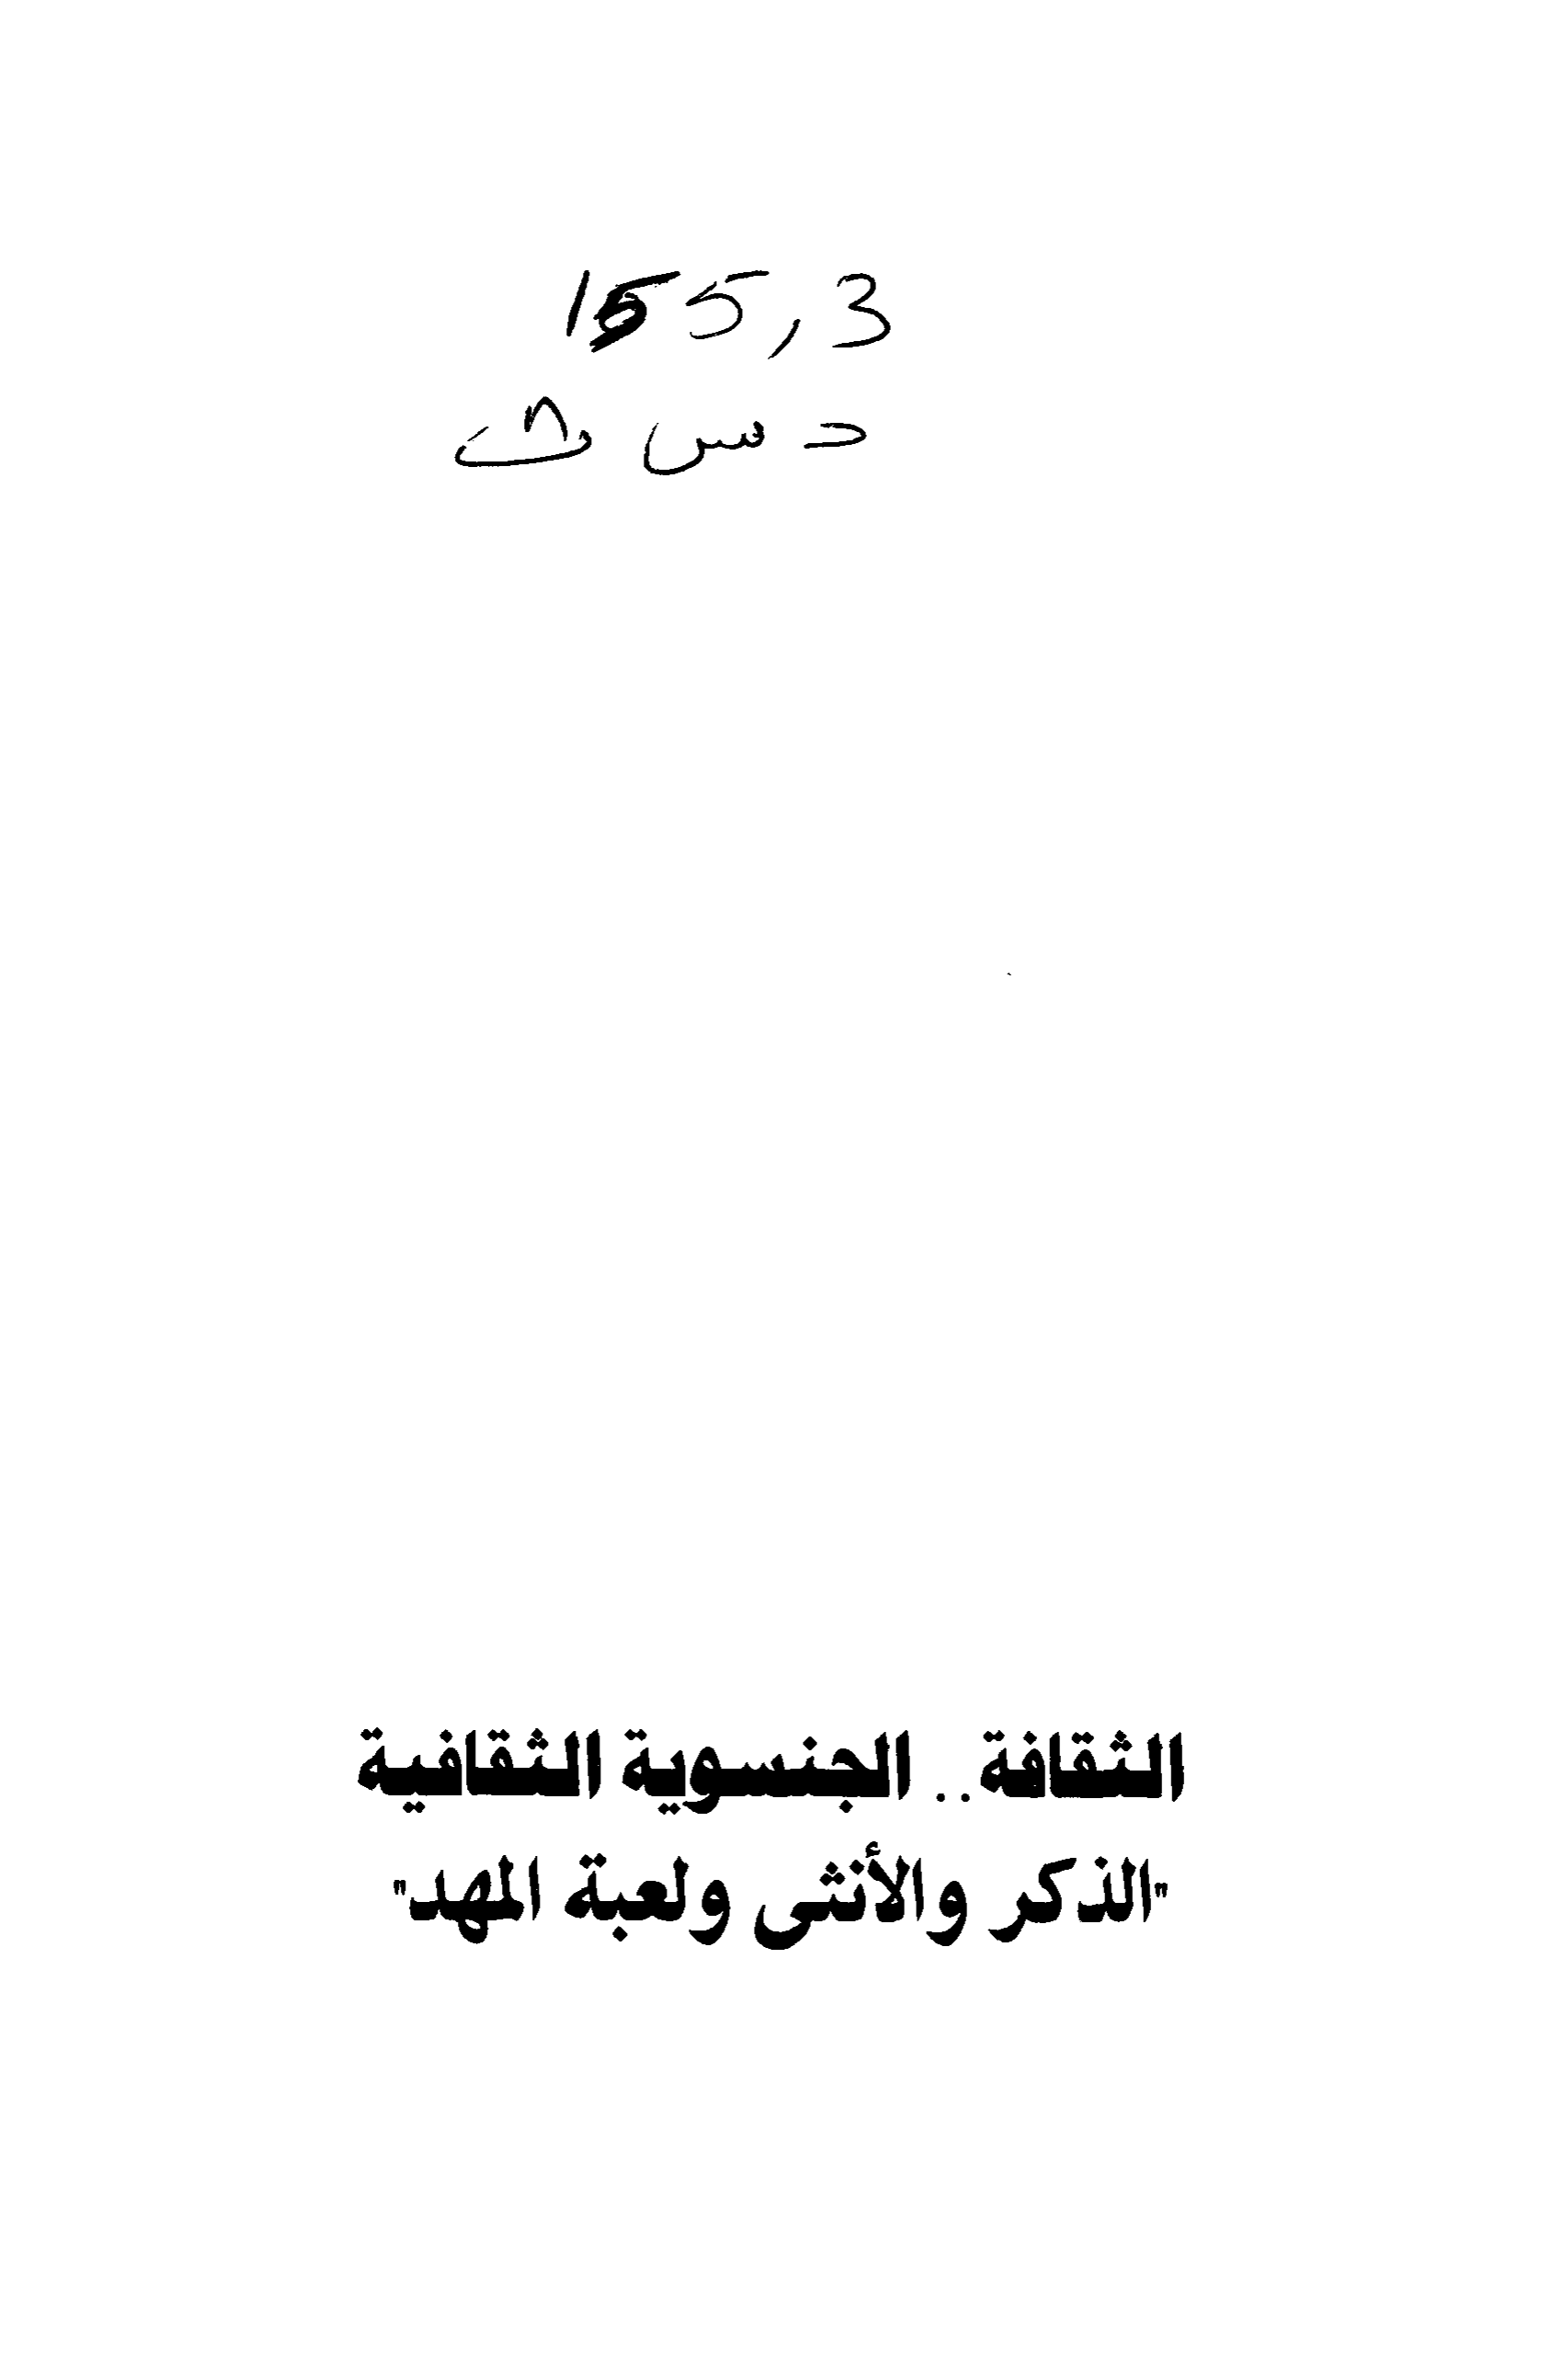 155,3
د س ث
الثقافة.. الجنسوية الثقافية
"الذكر والأنثى ولعبة المهد"